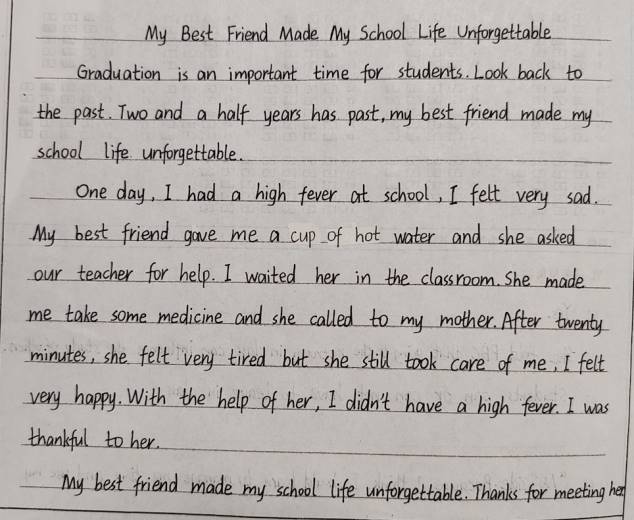 My Best Friend Made My School Life Unforgettable
Graduation is an important time for students. Look back to
the past. Two and a half years has past, my best friend made my
school life unforgettable.
One day, I had a high fever at school, I felt very sad.
My best friend gave me a cup of hot water and she asked
our teacher for help. I waited her in the classroom. She made
me take some medicine and she called to my mother. After twenty
minutes, she felt very tired but she still took care of me, I felt
very happy. With the help of her, I didn't have a high fever. I was
thankful to her.
My best friend made my school life unforgettable. Thanks for meeting her